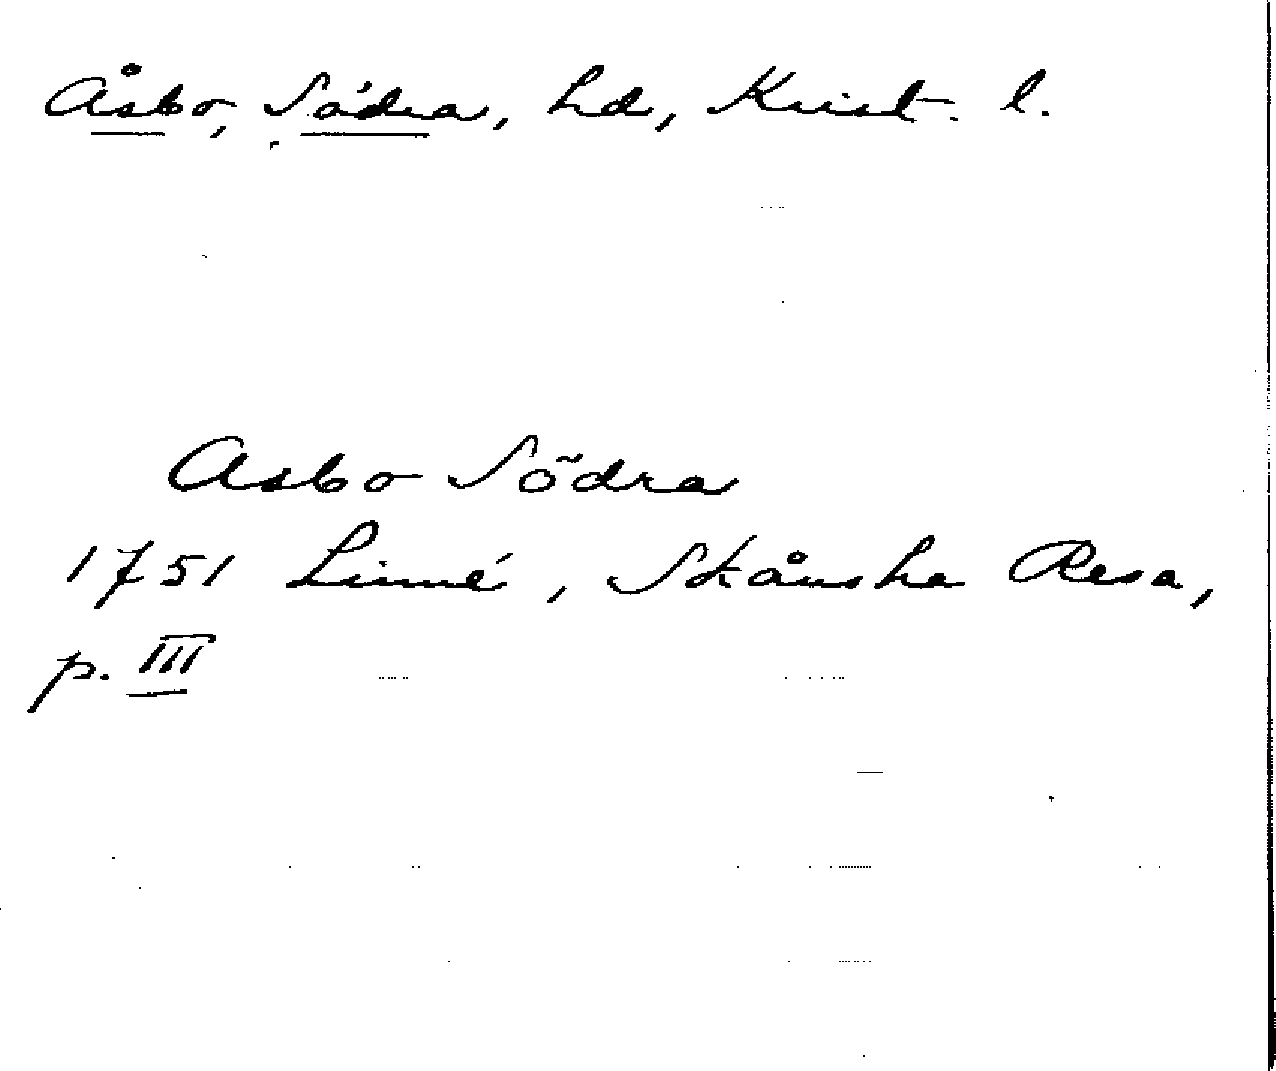 Åsbo, Södra, hd, Krist. l.
Asbo Södra
1751 Linné, Skånska Resa,
p. III